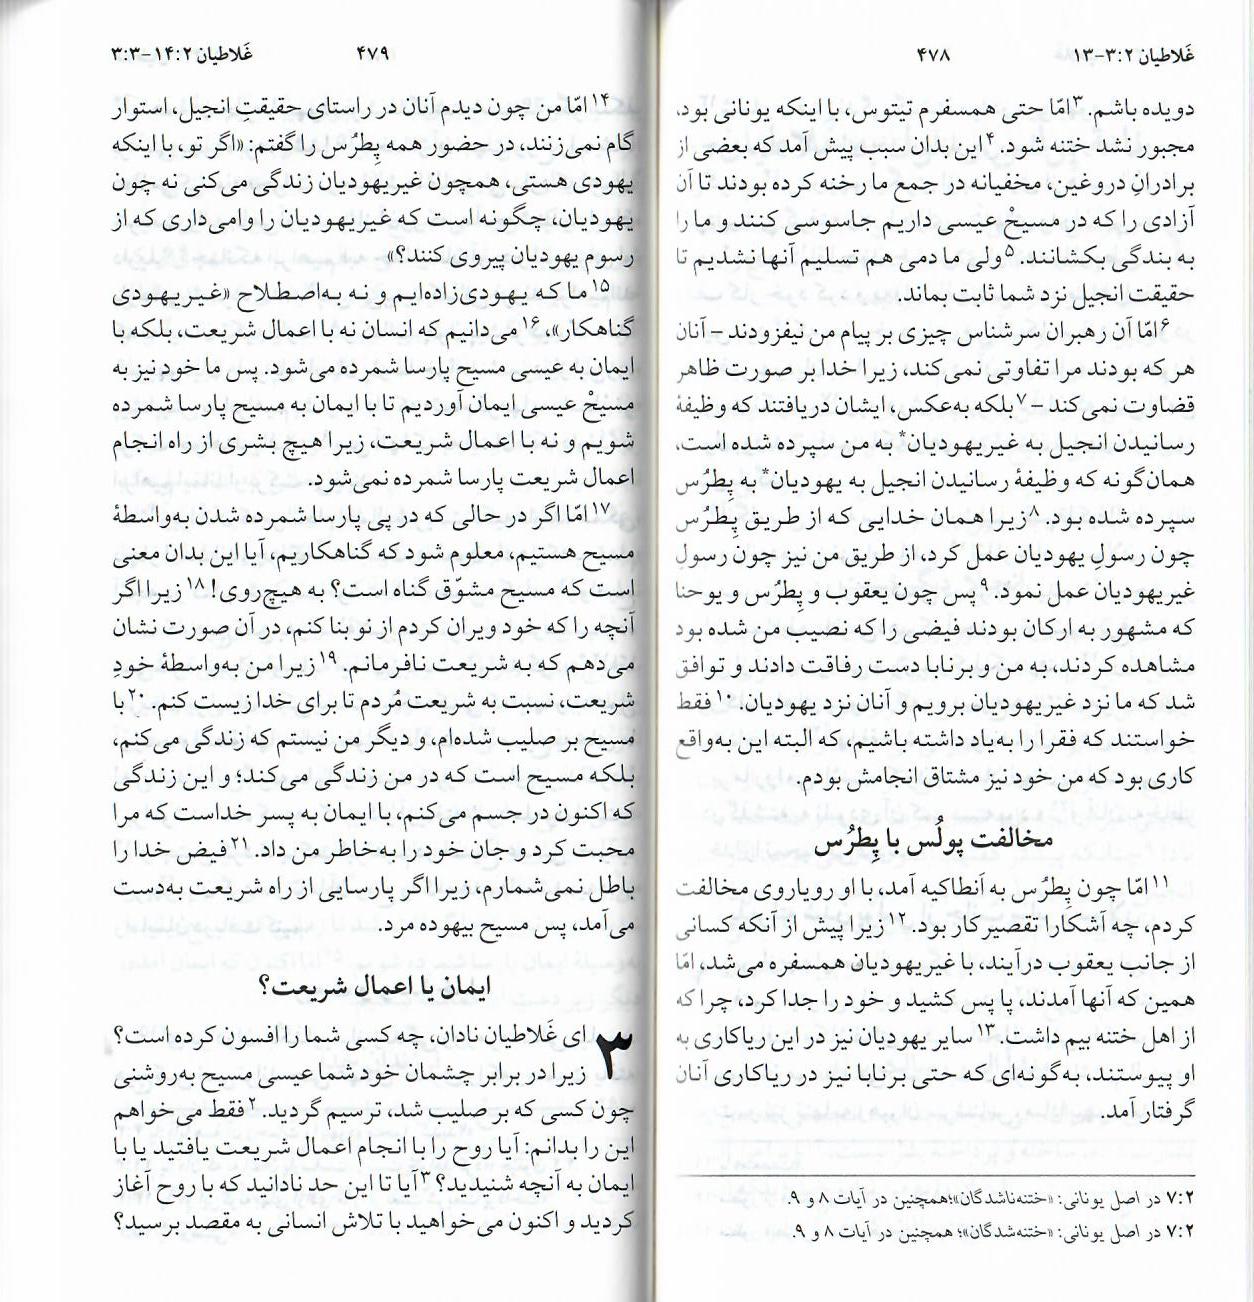 غَلاطیان ۲:‏۳-۱۳
۴۷۸
دویده باشم. ۳امّا حتی همسفرم تیتوس، با اینکه یونانی بود،
مجبور نشد ختنه شود. ۴این بدان سبب پیش آمد که بعضی از
برادرانِ دروغین، مخفیانه در جمع ما رخنه کرده بودند تا آن
آزادی را که در مسیحْ عیسی داریم جاسوسی کنند و ما را
به بندگی بکشانند. ۵ولی ما دمی هم تسلیم آنها نشدیم تا
حقیقت انجیل نزد شما ثابت بماند.
۶امّا آن رهبران سرشناس چیزی بر پیام من نیفزودند – آنان
هر که بودند مرا تفاوتی نمی‌کند، زیرا خدا بر صورت ظاهر
قضاوت نمی‌کند – ۷بلکه به‌عکس، ایشان دریافتند که وظیفهٔ
رسانیدن انجیل به غیریهودیان* به من سپرده شده است،
همان‌گونه که وظیفهٔ رسانیدن انجیل به یهودیان* به پِطرُس
سپرده شده بود. ۸زیرا همان خدایی که از طریق پِطرُس
چون رسولِ یهودیان عمل کرد، از طریق من نیز چون رسولِ
غیریهودیان عمل نمود. ۹پس چون یعقوب و پِطرُس و یوحنا
که مشهور به ارکان بودند فیضی را که نصیب من شده بود
مشاهده کردند، به من و برنابا دست رفاقت دادند و توافق
شد که ما نزد غیریهودیان برویم و آنان نزد یهودیان. ۱۰فقط
خواستند که فقرا را به‌یاد داشته باشیم، که البته این به‌واقع
کاری بود که من خود نیز مشتاق انجامش بودم.
مخالفت پولُس با پِطرُس
۱۱امّا چون پِطرُس به اَنطاکیه آمد، با او رویاروی مخالفت
کردم، چه آشکارا تقصیرکار بود. ۱۲زیرا پیش از آنکه کسانی
از جانب یعقوب درآیند، با غیریهودیان همسفره می‌شد، امّا
همین که آنها آمدند، پا پس کشید و خود را جدا کرد، چرا که
از اهل ختنه بیم داشت. ۱۳سایر یهودیان نیز در این ریاکاری به
او پیوستند، به‌گونه‌ای که حتی برنابا نیز در ریاکاری آنان
گرفتار آمد.
۷:۲ در اصل یونانی: «ختنه‌ناشدگان»؛همچنین در آیات ۸ و ۹.
۷:۲ در اصل یونانی: «ختنه‌شدگان»؛ همچنین در آیات ۸ و ۹.
۴۷۹
غَلاطیان ۱۴:۲-۳:۳
۱۴امّا من چون دیدم آنان در راستای حقیقتِ انجیل، استوار
گام نمی‌زنند، در حضور همه پِطرُس را گفتم: «اگر تو، با اینکه
یهودی هستی، همچون غیریهودیان زندگی می‌کنی نه چون
یهودیان، چگونه است که غیریهودیان را وامی‌داری که از
رسوم یهودیان پیروی کنند؟»
۱۵ما که یهودی‌زاده‌ایم و نه به‌اصطلاح «غیریهودی
گناهکار»، ۱۶می‌دانیم که انسان نه با اعمال شریعت، بلکه با
ایمان به عیسی مسیح پارسا شمرده می‌شود. پس ما خود نیز به
مسیحْ عیسی ایمان آوردیم تا با ایمان به مسیح پارسا شمرده
شویم و نه با اعمال شریعت، زیرا هیچ بشری از راه انجام
اعمال شریعت پارسا شمرده نمی‌شود.
۱۷امّا اگر در حالی که در پی پارسا شمرده شدن به‌واسطهٔ
مسیح هستیم، معلوم شود که گناهکاریم، آیا این بدان معنی
است که مسیح مشوّق گناه است؟ به هیچ‌روی! ۱۸زیرا اگر
آنچه را که خود ویران کردم از نو بنا کنم، در آن صورت نشان
می‌دهم که به شریعت نافرمانم. ۱۹زیرا من به‌واسطهٔ خودِ
شریعت، نسبت به شریعت مُردم تا برای خدا زیست کنم. ۲۰با
مسیح بر صلیب شده‌ام، و دیگر من نیستم که زندگی می‌کنم،
بلکه مسیح است که در من زندگی می‌کند؛ و این زندگی
که اکنون در جسم می‌کنم، با ایمان به پسر خداست که مرا
محبت کرد و جان خود را به‌خاطر من داد. ۲۱فیض خدا را
باطل نمی‌شمارم، زیرا اگر پارسایی از راه شریعت به‌دست
می‌آمد، پس مسیح بیهوده مرد.
ایمان یا اعمال شریعت؟
۳ ای غَلاطیان نادان، چه کسی شما را افسون کرده است؟
زیرا در برابر چشمان خود شما عیسی مسیح به‌روشنی
چون کسی که بر صلیب شد، ترسیم گردید. ۲فقط می‌خواهم
این را بدانم: آیا روح را با انجام اعمال شریعت یافتید یا با
ایمان به آنچه شنیدید؟ ۳آیا تا این حد نادانید که با روح آغاز
کردید و اکنون می‌خواهید با تلاش انسانی به مقصد برسید؟